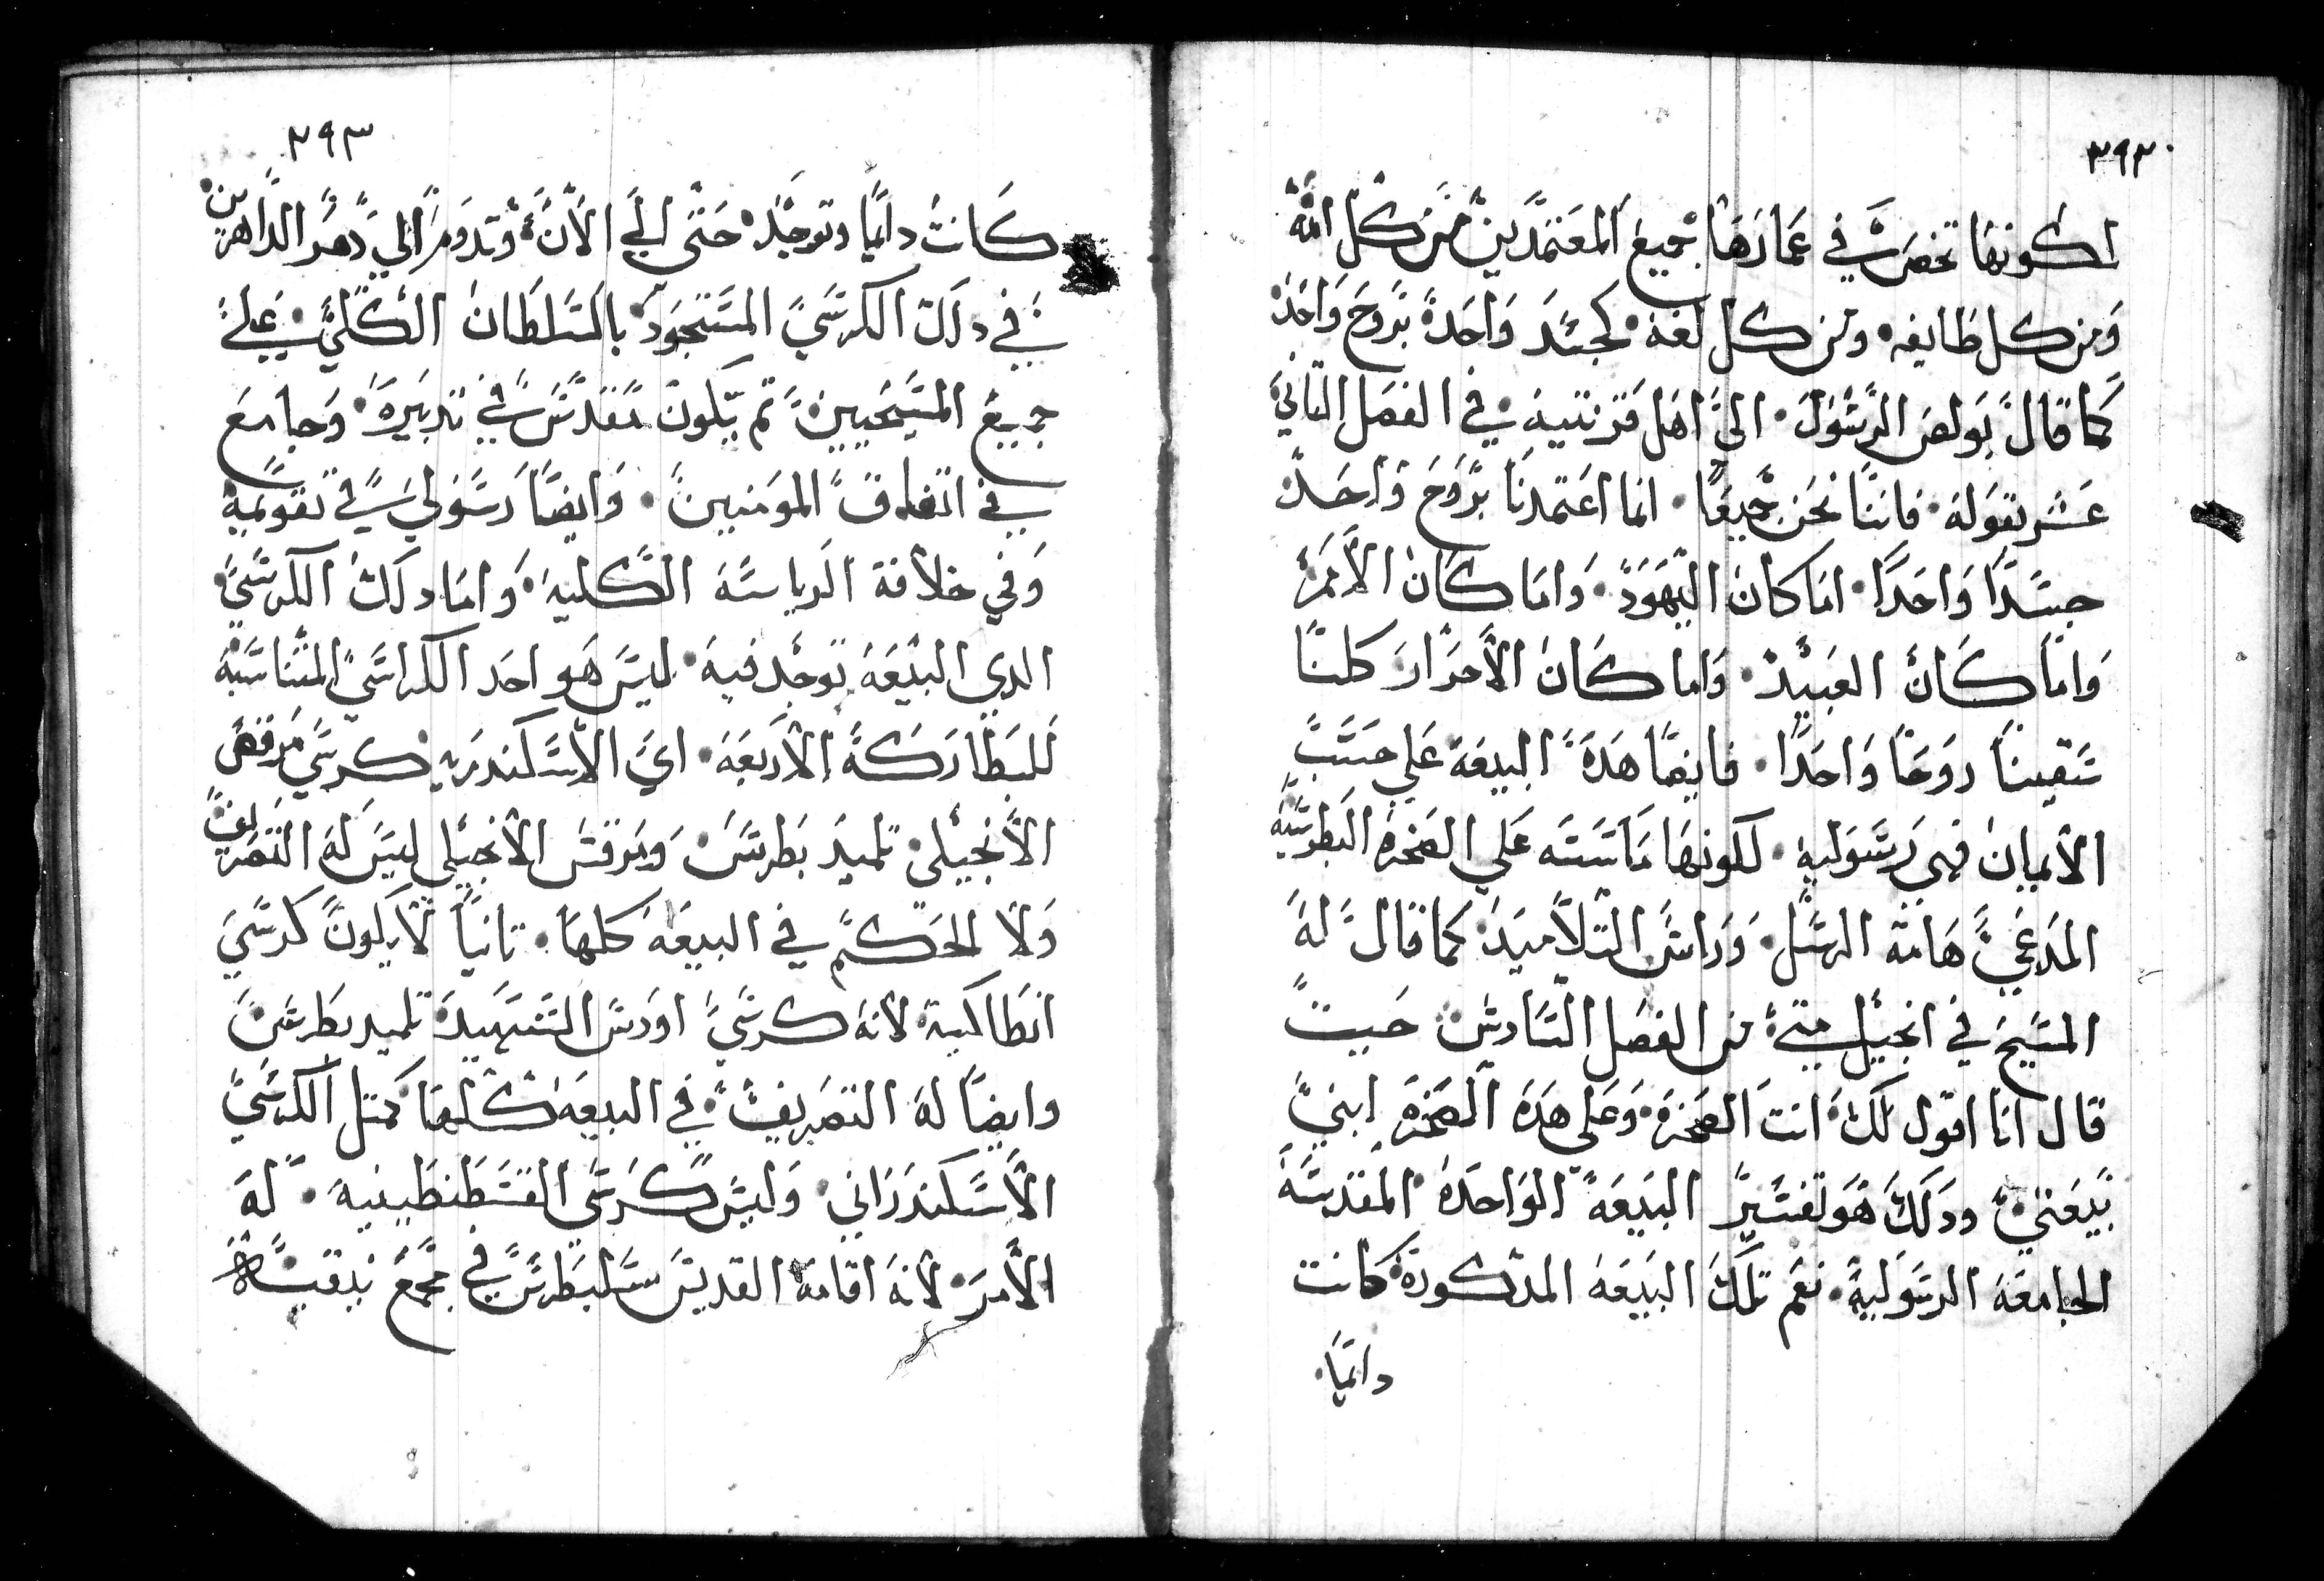 ٣٩٢
لكونها تخصرت في عمادها جميع المعتمدين من كل امة
ومن كل طايفه ومن كل لغة كجسد واحدة بروح واحد
كما قال بولص الرسول الى اهل قرنتيه في الفصل الثاني
عشر بقوله فاننا نحن جميعا انما اعتمدنا بروح واحد
جسدا واحدا اما كان اليهود واما كان الامم
واما كان العبيد واما كان الاحرار كلنا
سقينا روحا واحدا فايضا هده البيعة علي حسب
الايمان فهي رسوليه لكونها ماسسه علي الصخره البطرسيه
المدعي هامة الرسل وراس التلاميد كما قال له
المسيح في انجيل متي من الفصل السادس حيث
قال انا اقول لك انت الصخره وعلى هده الصخره ابني
بيعتي ودلك هو تفسير البيعة الواحده المقدسة
الجامعة الرسولية نعم تلك البيعة المدكورة كانت
دايما
٢٩٣
كانت دايما وتوجد حتى الي الان وتدوم الي دهر الداهرين
في دلك الكرسي المسجود بالسلطان الكلي علي
جميع المسيحيين ثم يكون مقدس في تدبيره وجامع
في اتفاق المومنين وايضا رسولي في تقويمه
وفي خلافة الرياسة الكلية واما دلك الكرسي
الدي البيعة توجد فيه ليس هو احد الكراسي المتناسبة
للبطاركة الاربعة اي الاسكندريه كرسي مرقص
الانجيلي تلميد بطرس ومرقس الانجيلي ليس له التصريف
ولا الحكم في البيعة كلها تانيا لا يكون كرسي
انطاكية لانه كرسي اودس الشهيد تلميد بطرس
وايضا له التصريف في البيعة كلها كمتل الكرسي
الاسكندراني وليس كرسي القسطنطينية له
الامر لانه اقامه القديس سلبطرس في مجمع نيقية